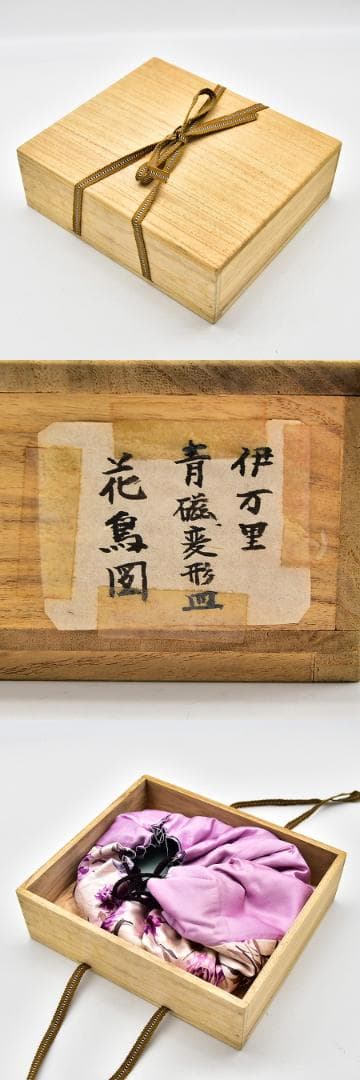 伊万里
青磁変形皿
花鳥図